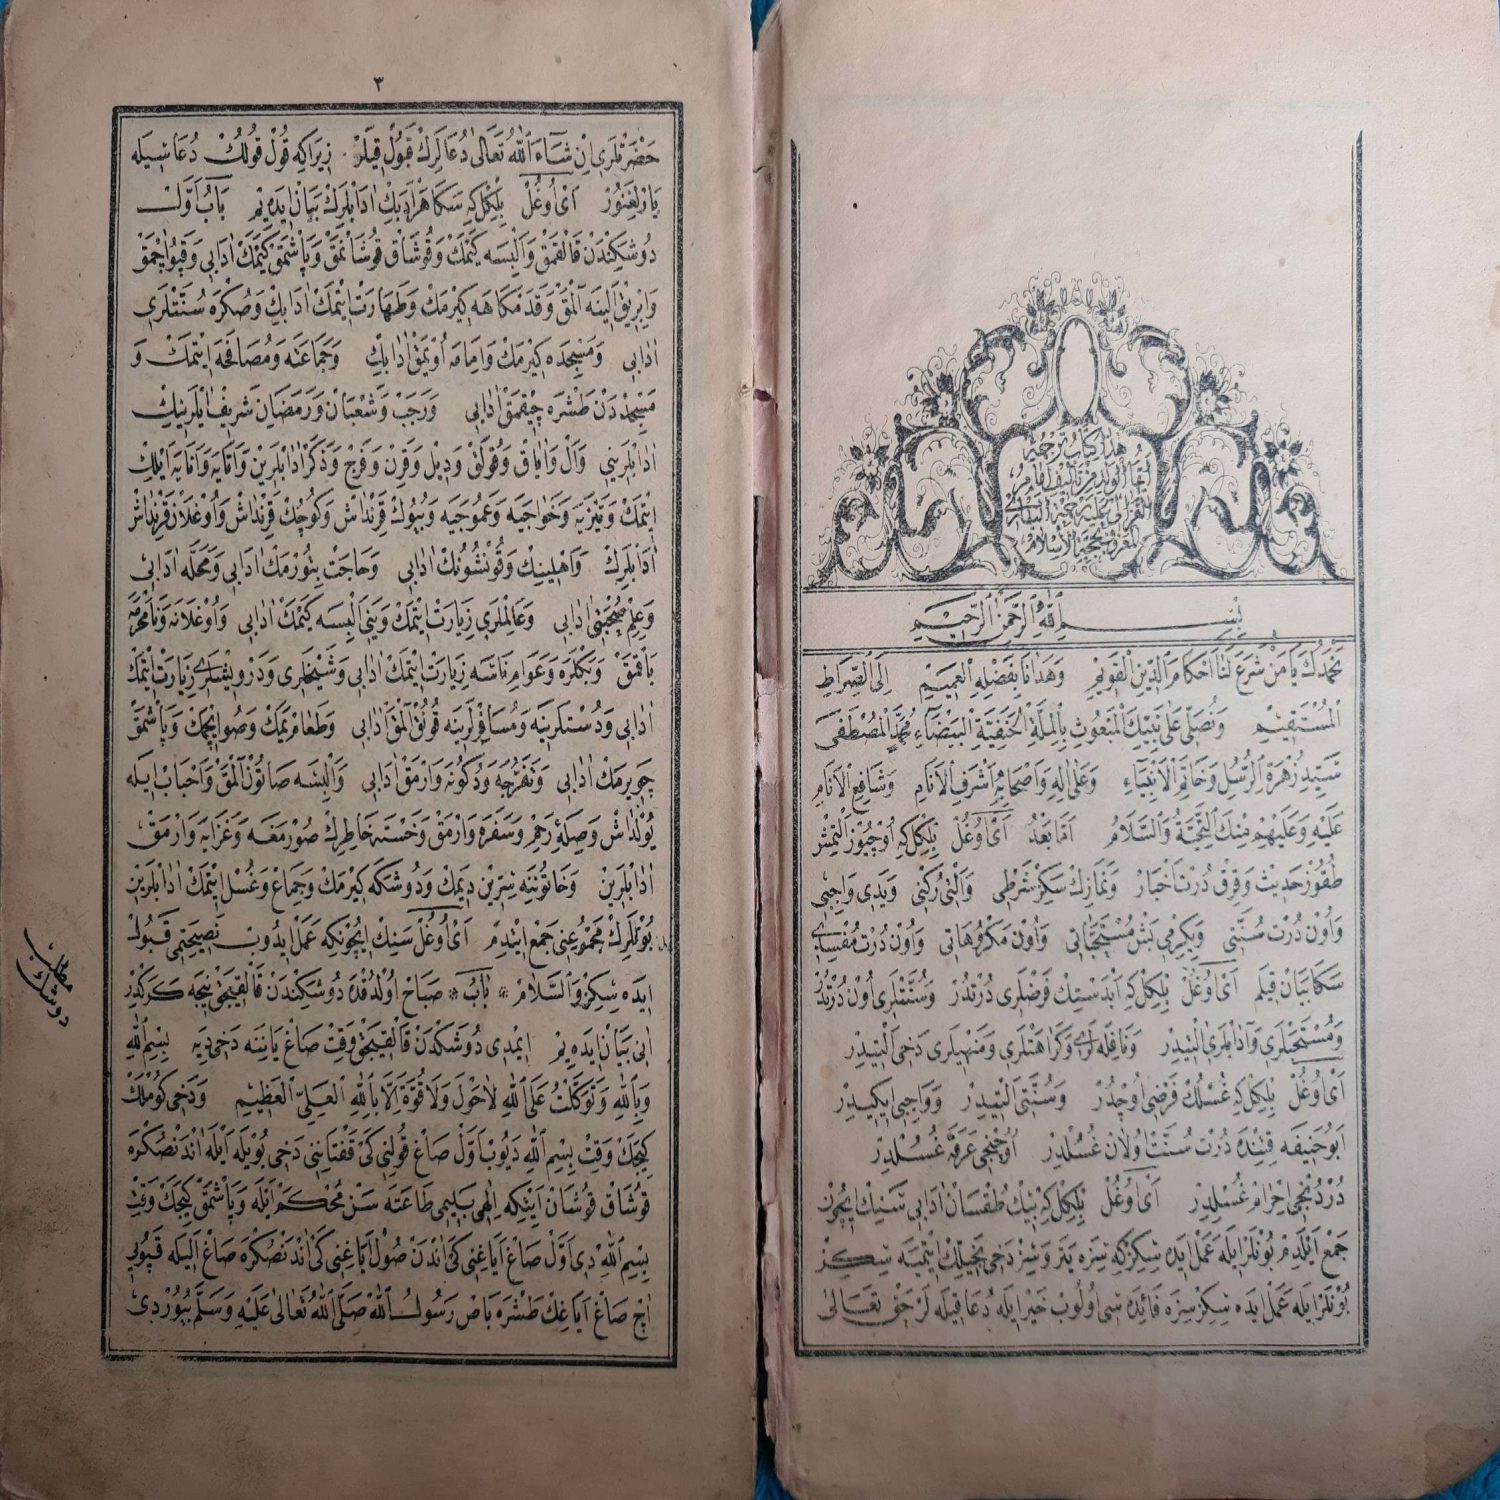 هذا كتاب ترجمة
ايها الولد من تأليف امام
الغزالى عليه رحمة البارى
المعروف بحجة الاسلام
بسم الله الرحمن الرحيم
نحمدك يا من شرع لنا احكام الدين القويم وهدانا بفضله العميم الى الصراط
المستقيم ونصلى على نبيك المبعوث بالملة الحنفية البيضاء محمد المصطفى
سيد زهرة الرسل وخاتم الانبياء وعلى اله واصحابه اشرف الانام وشافع الانام
عليه وعليهم منك التحية والسلام اما بعد اى اوغل بلكل كه اوچيوز التمش
طقوز حديث وقرق درت اخبار ونمازك سكز شرطى والتى ركنى ويدى واجبى
واون درت سنتى ويكرمى بش مستحباتى واون مكروهاتى واون درت مفسداى
سكا بيان قيلم اى اوغل بلكل كه ابدستك فرضلرى درتدر وسنتلرى اون درتدر
ومستحبلرى وادابلرى التيدر ونافله لرى وكراهتلرى ومنهيلرى دخى التيدر
اى اوغل بلكل كه غسلك فرضى اوچدر وسنتى التيدر وواجبى ايكيدر
ابو حنيفه قتنده درت سنت اولان غسلدر اوچنجى عرفه غسلدر
دردنجى احرام غسلدر اى اوغل بلكل كه بيك طقسان ادابى سنك ايچون
جمع ايلدم بونلر ايله عمل ايده سكز كه سزه يتر وسز دخى بخيللك ايتميه سكز
بونلر ايله عمل ايده سكز سزه فائده سى اولوب خير ايله دعا قيله لر حق تعالى
٣
حضرتلرى ان شاء الله تعالى دعالرك قبول قيلر زيرا كه قول قولك دعاسيله
يارلغنور اى اوغل بلكل كه سكا هر ادبك ادابلرك بيان ايده يم باب اول
دوشكندن قالقمق والبسه كيمك وقوشاق قوشانمق وپاشمق كيمك ادابى وقپو اچمق
وابريق الينه المق وقدمكاهه كيرمك وطهارت ايتمك ادابك وصكره سنتلرى
ادابى ومسجده كيرمك وامامه اويمق ادابك وجماعته ومصافحه ايتمك و
مسجددن طشره چيقمق ادابى ورجب وشعبان ورمضان شريف ايلرينك
ادابلرينى وال واياق وقولق وديل وقرن وفرج وذكر ادابلرين واتايه واتايه ايلك
ايتمك وتيزيه وخواجيه وعموجيه وبيوك قرنداش وكوچك قرنداش واوغلان قرنداش
ادابلرك واهلينك وقونشونك ادابى وحاجت بتورمك ادابى ومحله ادابى
وعلم صحبتى ادابى وعالملرى زيارت ايتمك ويكى البسه كيمك ادابى واوغلانه ونامحرمه
باقمق وبكلره وعوام ناسه زيارت ايتمك ادابى وشيخلرى ودرويشلرى زيارت ايتمك
ادابى ودستلرينه ومسافرلرينه قونق المق ادابى وطعام يمك وصو ايچمك وپاشمق
چويرمك ادابى وتفرجه ودكونه وارمق ادابى والبسه صاتون المق واحباب ايله
يولداش وصله رحم وسفره وارمق وخسته خاطرك صورمغه وغزايه وارمق
ادابلرين وخاتوننه سرين ديمك ودوشكه كيرمك وجماع وغسل ايتمك ادابلرين
بونلرك مجموعنى جمع ايتدم اى اوغل سنك ايچونكه عمل ايدوب نصيحتمى قبول
ايده سكز والسلام باب صباح اولدقده دوشكندن قالقيجق نيجه كركدر
انى بيان ايده يم ايمدى دوشكدن قالقيجق وقت صاغ ياننه دخى ديه بسم الله
وبالله وتوكلت على الله لا حول ولا قوة الا بالله العلى العظيم ودخى كوملك
كيجك وقت بسم الله ديوب اول صاغ قولنى كى قفتاننى دخى بويله ايله اندنصكره
قوشاق قوشان ايتكه الهى بيليمى طاعته سن محكم ايله وپاشمق كيجك وقت
بسم الله دى اول صاغ اياغنى كى اندن صول اياغنى كى اندنصكره صاغ اليله قپويى
اچ صاغ اياغك طشره باص رسول الله صلى الله تعالى عليه وسلم بيوردى
مطلب
دوشك